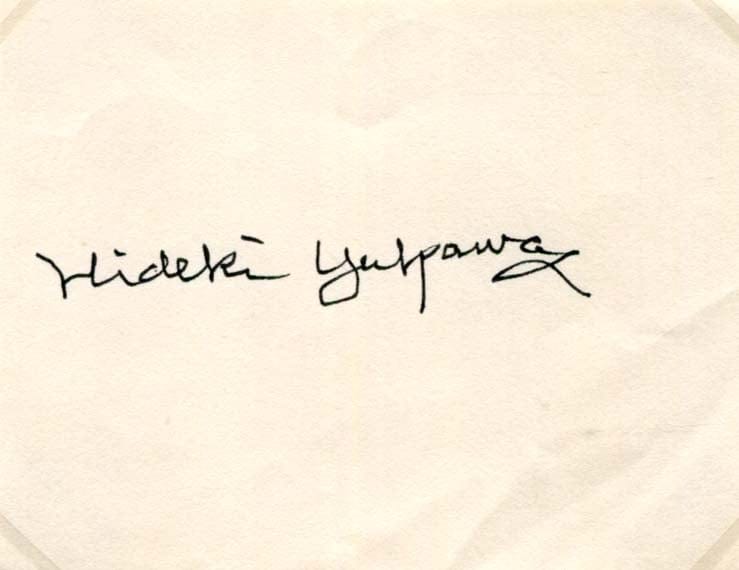 Hideki Yukawa